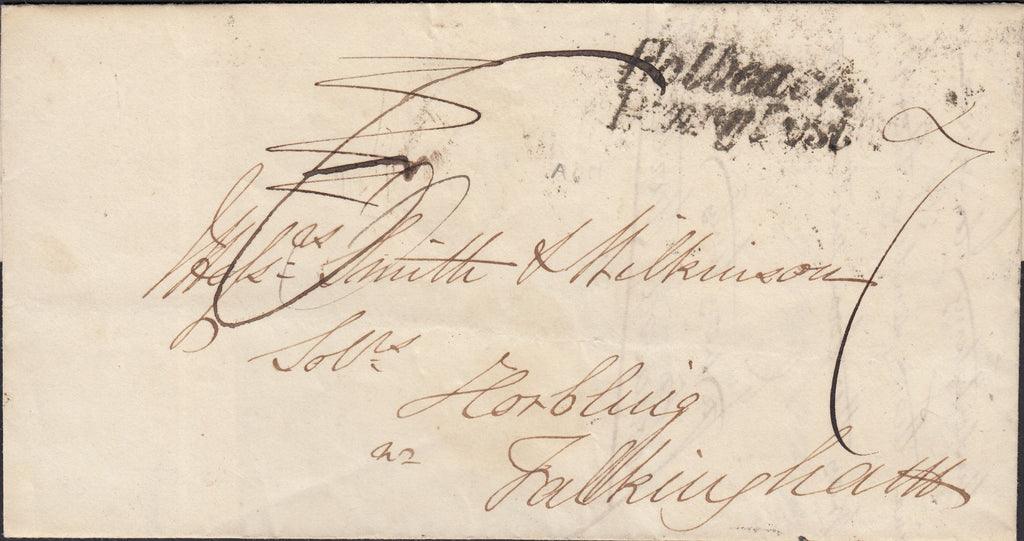 Holbeach
Penny Post
Mess.rs Smith & Wilkinson
Solrs
Horbling
nr
Falkingham